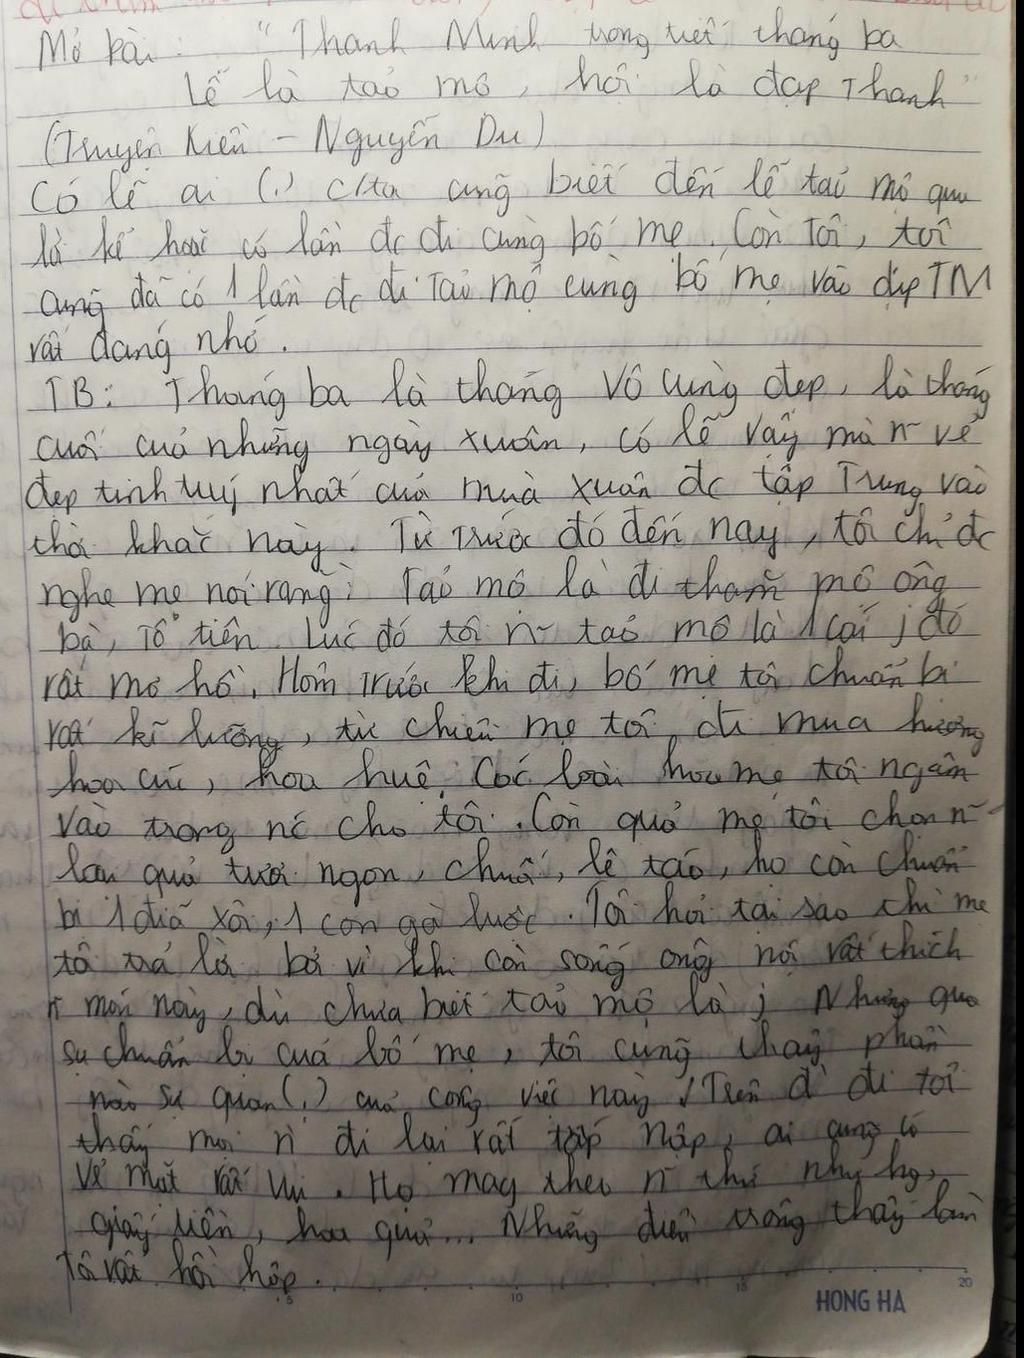 Mở bài: "Thanh Minh trong tiết tháng ba
Lễ là tảo mộ, hội là đạp Thanh"
(Truyện Kiều - Nguyễn Du)
Có lẽ ai (.) c/ta cũng biết đến lễ tảo mộ qua
lời kể hoặc có lần đc đi cùng bố mẹ. Còn Tôi, tôi
cũng đã có 1 lần đc đi Tảo mộ cùng bố mẹ vào dịp TM
rất đáng nhớ.
TB: Tháng ba là tháng vô cùng đẹp, là tháng
cuối của những ngày xuân, có lẽ vậy mà n~ vẻ
đẹp tinh tuý nhất của mùa xuân đc tập Trung vào
thời khắc này. Từ Trước đó đến nay, tôi chỉ đc
nghe mẹ nói rằng: Tảo mộ là đi thăm mộ ông
bà, Tổ tiên. Lúc đó tôi n~ tảo mộ là 1 cái j đó
rất mơ hồ. Hôm Trước khi đi, bố mẹ tôi chuẩn bị
rất kĩ lưỡng, từ chiều mẹ tôi đi mua hương
hoa cúc, hoa huệ. Các loài hoa mẹ tôi ngâm
vào trong nc cho tôi. Còn quả mẹ tôi chọn n~
loại quả tươi ngon, chuối, lê táo, họ còn chuẩn
bị 1 đĩa xôi, 1 con gà luộc. Tôi hỏi tại sao thì mẹ
tôi trả lời bởi vì khi còn sống ông nội rất thích
n~ món này, dù chưa biết tảo mộ là j Nhưng qua
sự chuẩn bị của bố mẹ, tôi cũng thấy phần
nào sự quan (.) của công việc này. Trên đ` đi tôi
thấy mọi n` đi lại rất tấp nập, ai cũng có
vẻ mặt rất vui. Họ mang theo n~ thứ như
giấy tiền, hoa quả... Những điều trông thấy làm
Tôi rất hồi hộp.
5 10 15 20
HONG HA